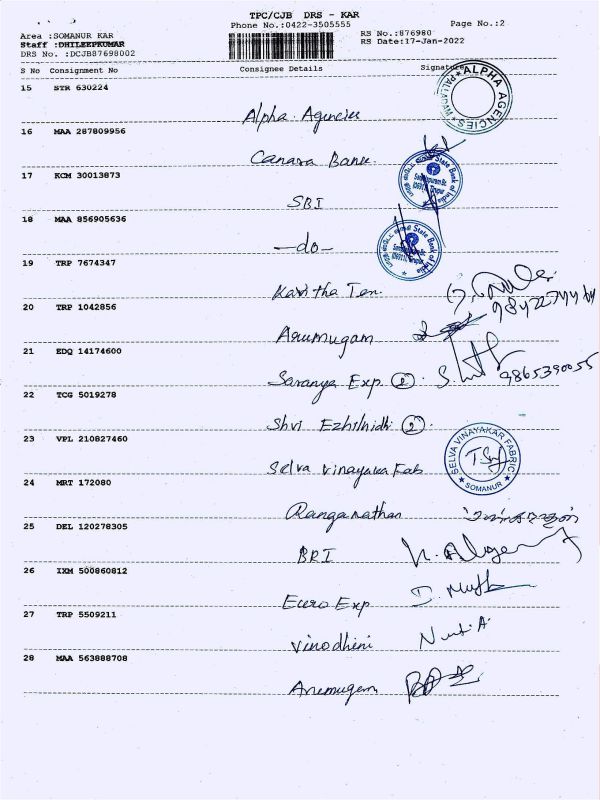 TPC/CJB DRS - KAR
Phone No.:0422-3505555
Page No.:2
Area :SOMANUR KAR
RS No.:876980
Staff :DHILEEPKUMAR
RS Date:17-Jan-2022
DRS No. :DCJB87698002
S No Consignment No Consignee Details Signature
15 STR 630224
Alpha Agencies
ALPHA AGENCIES
PALLADAM
16 MAA 287809956
Canara Bank
17 KCM 30013873
SBI
State Bank of India
18 MAA 856905636
—do—
State Bank of India
19 TRP 7674347
Kavitha Tex.
20 TRP 1042856
Arumugam
21 EDQ 14174600
Saranya Exp ② 9865390055
22 TCG 5019278
Shri Ezhilnidhi ②
23 VPL 210827460
Selva Vinayaka Fab
SELVA VINAYAKAR FABRIC
SOMANUR
24 MRT 172080
Ranganathan
25 DEL 120278305
BRI
26 IXM 500860812
Euro Exp
27 TRP 5509211
Vinodhini
28 MAA 563888708
Arumugam